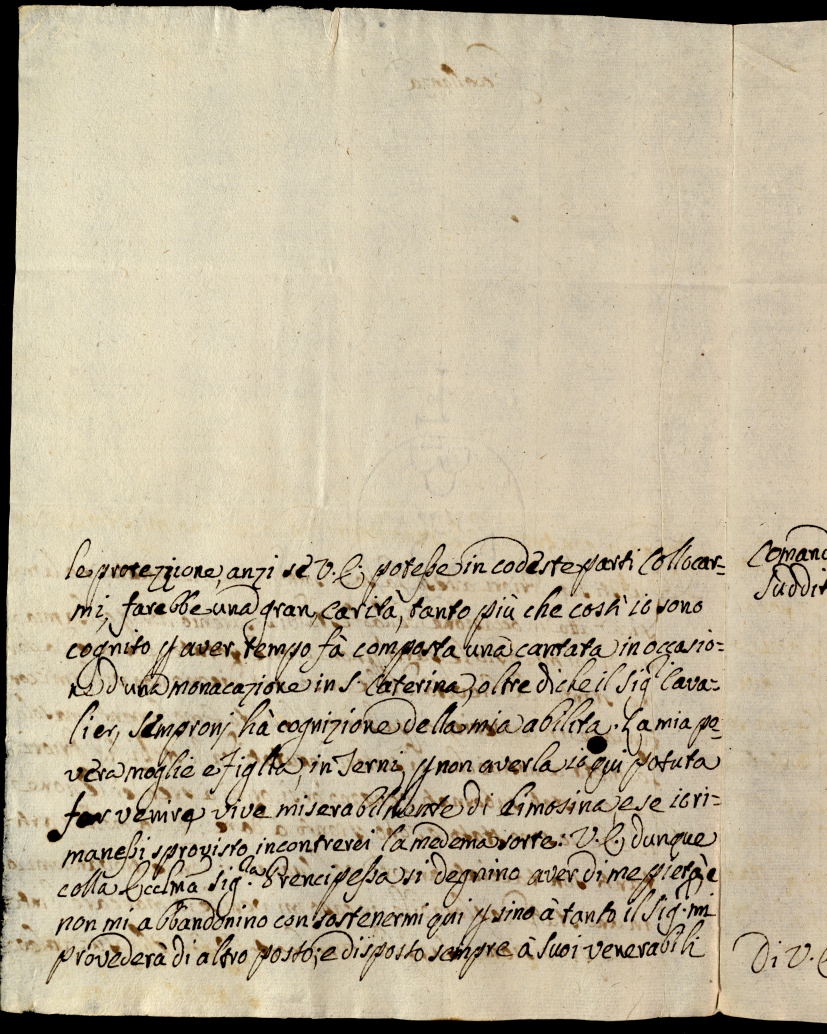 le protezzione, anzi se V. E. potesse in codeste parti collocar=
mi, farebbe una gran carità, tanto più che costì io sono
cognito p aver tempo fà composta una cantata in occasio=
ne d'una monacazione in S. Caterina, oltre di che il Sig.r Cava=
lier Sempronj hà cognizione della mia abilita. La mia po=
vera moglie e figlia, in Terni, p non averla io qui potuta
far venire, vive miserabilmente di limosina, e se io ri=
manessi sprovisto, incontrerei la medema sorte. V. E. dunque
colla Eccl.ma Sig.ra Prencipessa si degnino aver di me pietà, e
non mi abbandonino con sostenermi qui p sino à tanto il Sig.r mi
provederà di altro posto; e disposto sempre à suoi venerabili
Comand
Suddit
Di V. E